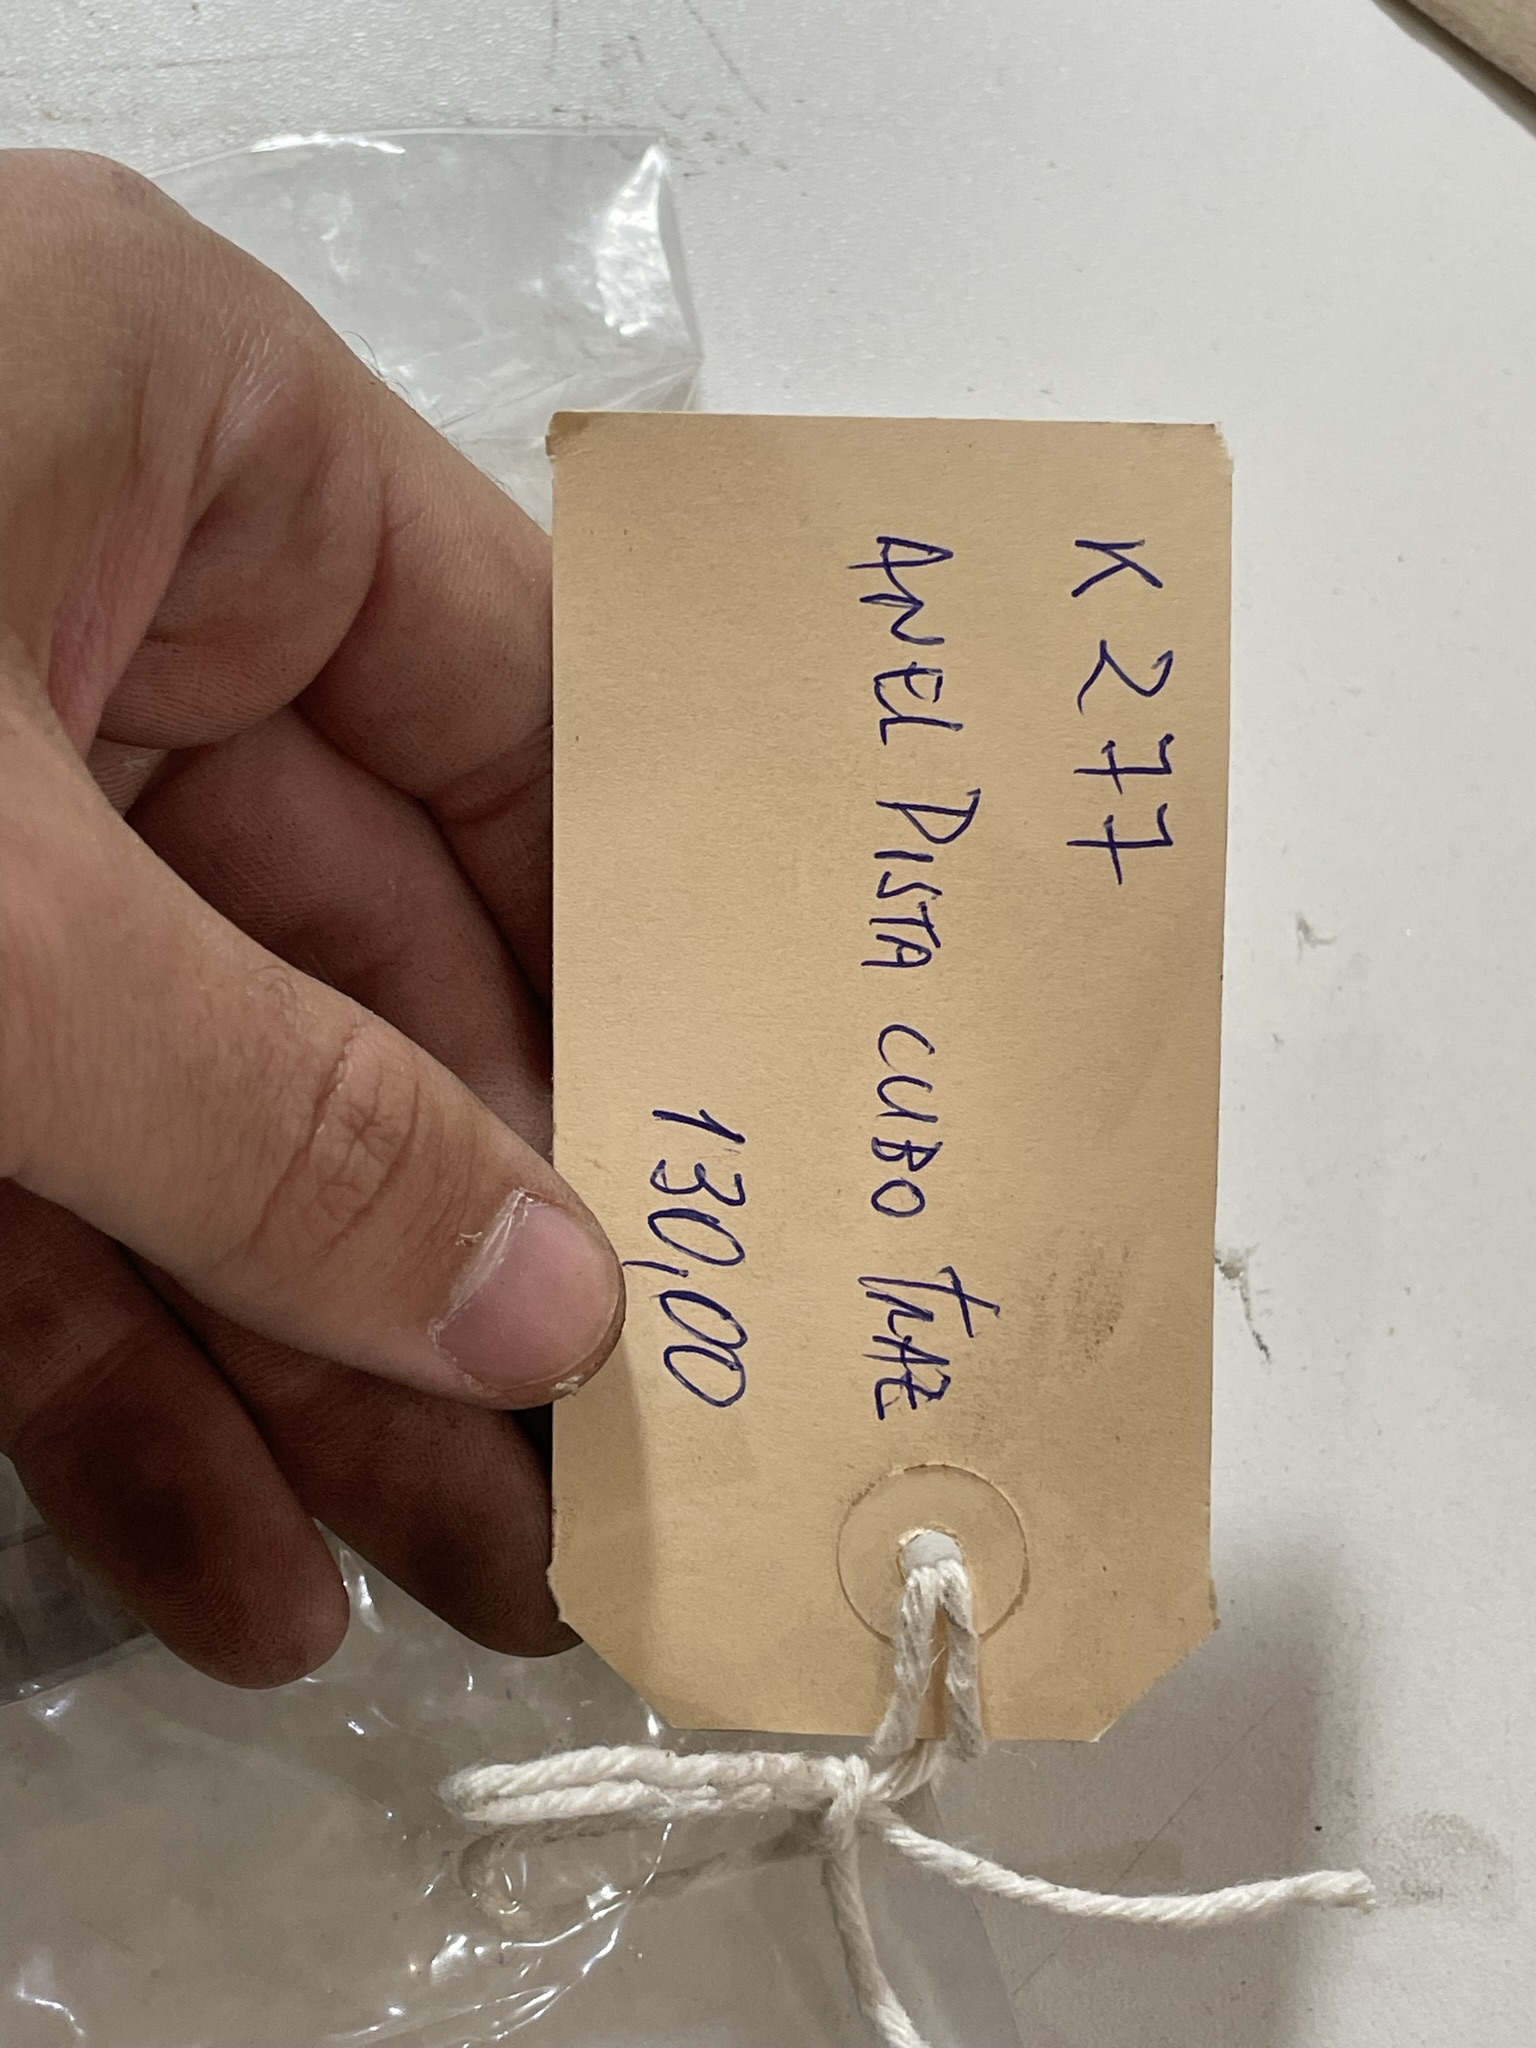 K 277
ANEL DISTA CUBO TRAZ
130,00